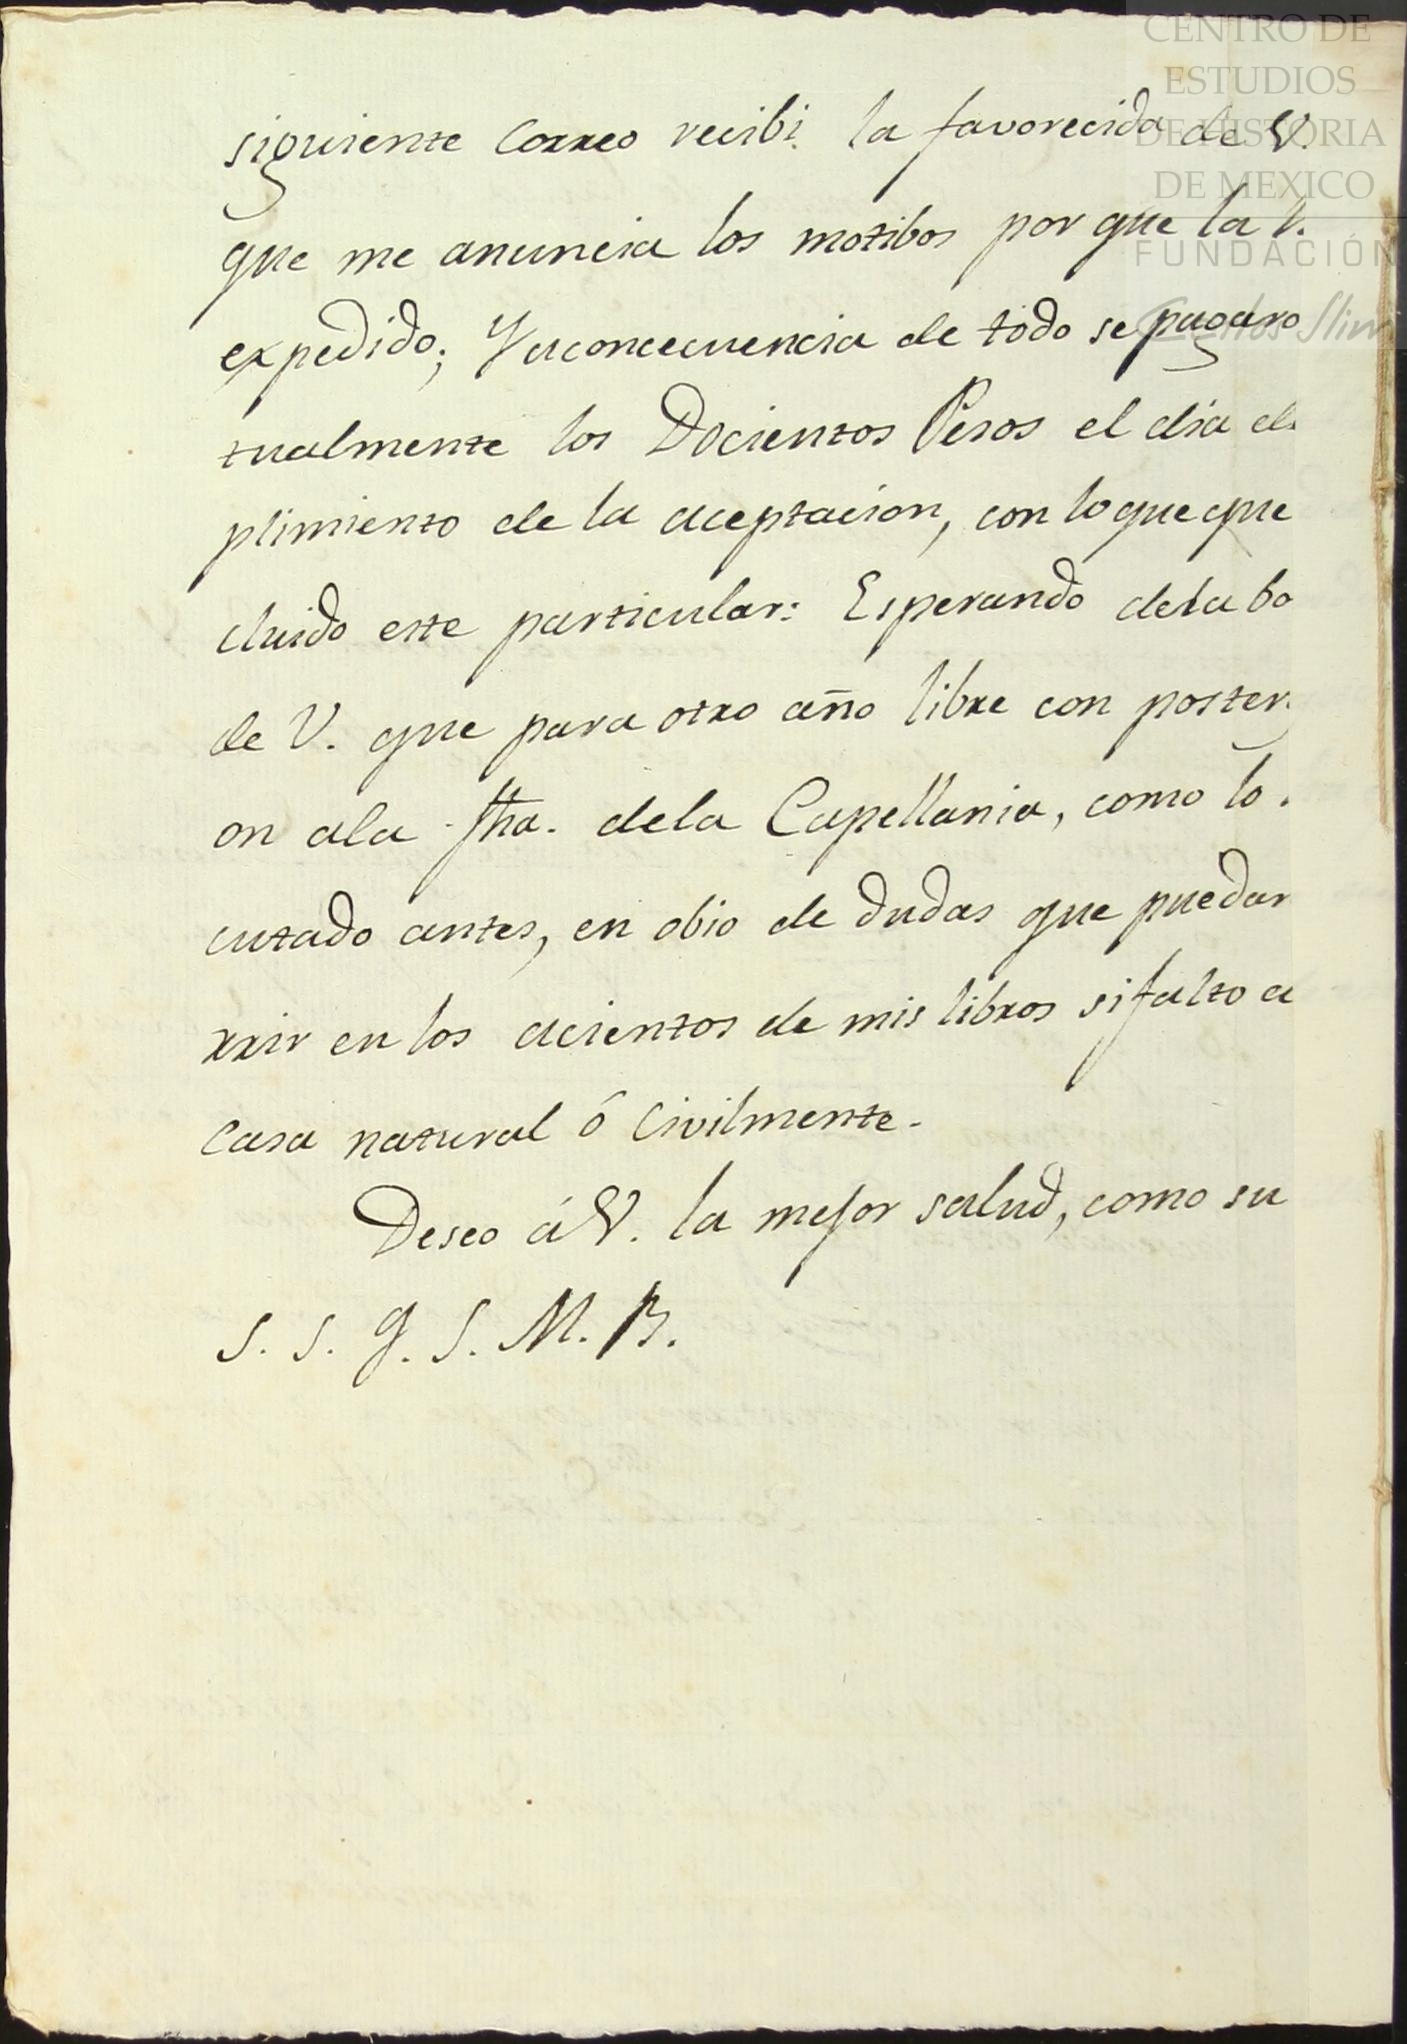 CENTRO DE
ESTUDIOS
DE HISTORIA
DE MEXICO
FUNDACIÓN
Carlos Slim
siguiente Correo recibi la favorecida de V.
que me anuncia los motibos por que la
expedido; Y aconcecuencia de todo se pagaro
tualmente los Docientos Pesos el dia
plimiento de la aceptacion, con lo que que
cluido este particular: Esperando dela bo
de V. que para otro año libre con poster
on ala fha. dela Capellania, como lo
cutado antes, en obio de dudas que puedan
rrir en los acientos de mis libros si falto a
Casa natural ó Civilmente.
Deseo á V. la mejor salud, como su
S. S. Q. S. M. B.